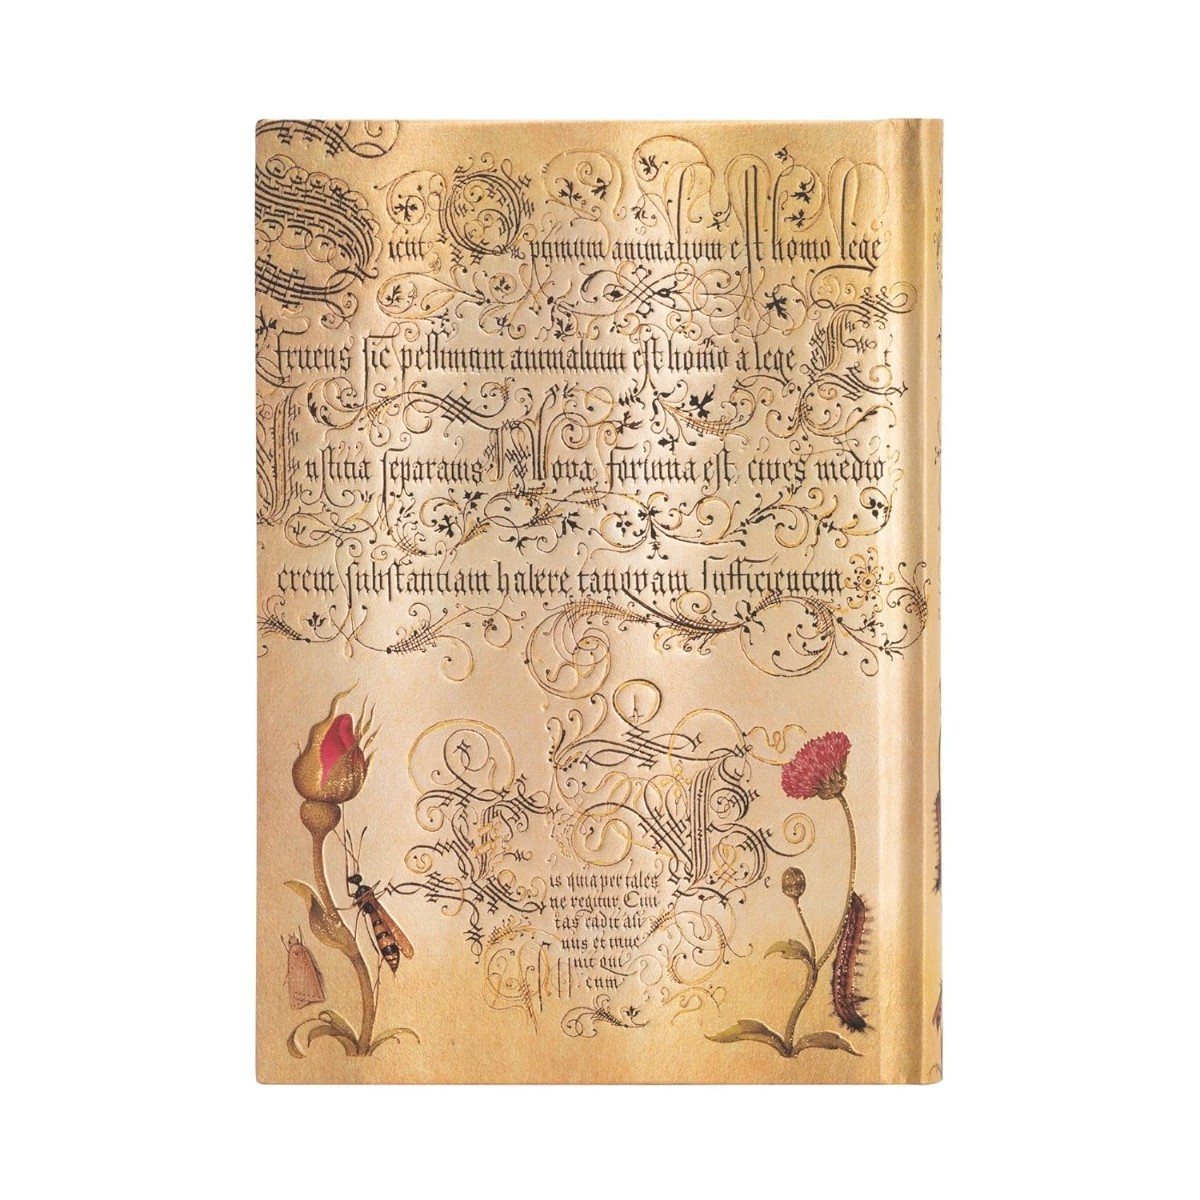 Sicut Optimum animalium est homo lege
fruens sic pessimum animalium est homo a lege Et
Iustitia separatus Nova fortuna est, cives medio
crem substantiam habere tanquam sufficientem
is quia per tales
ne regitur, Civi
tas cadit asi
nus et inve
nit qui
cum